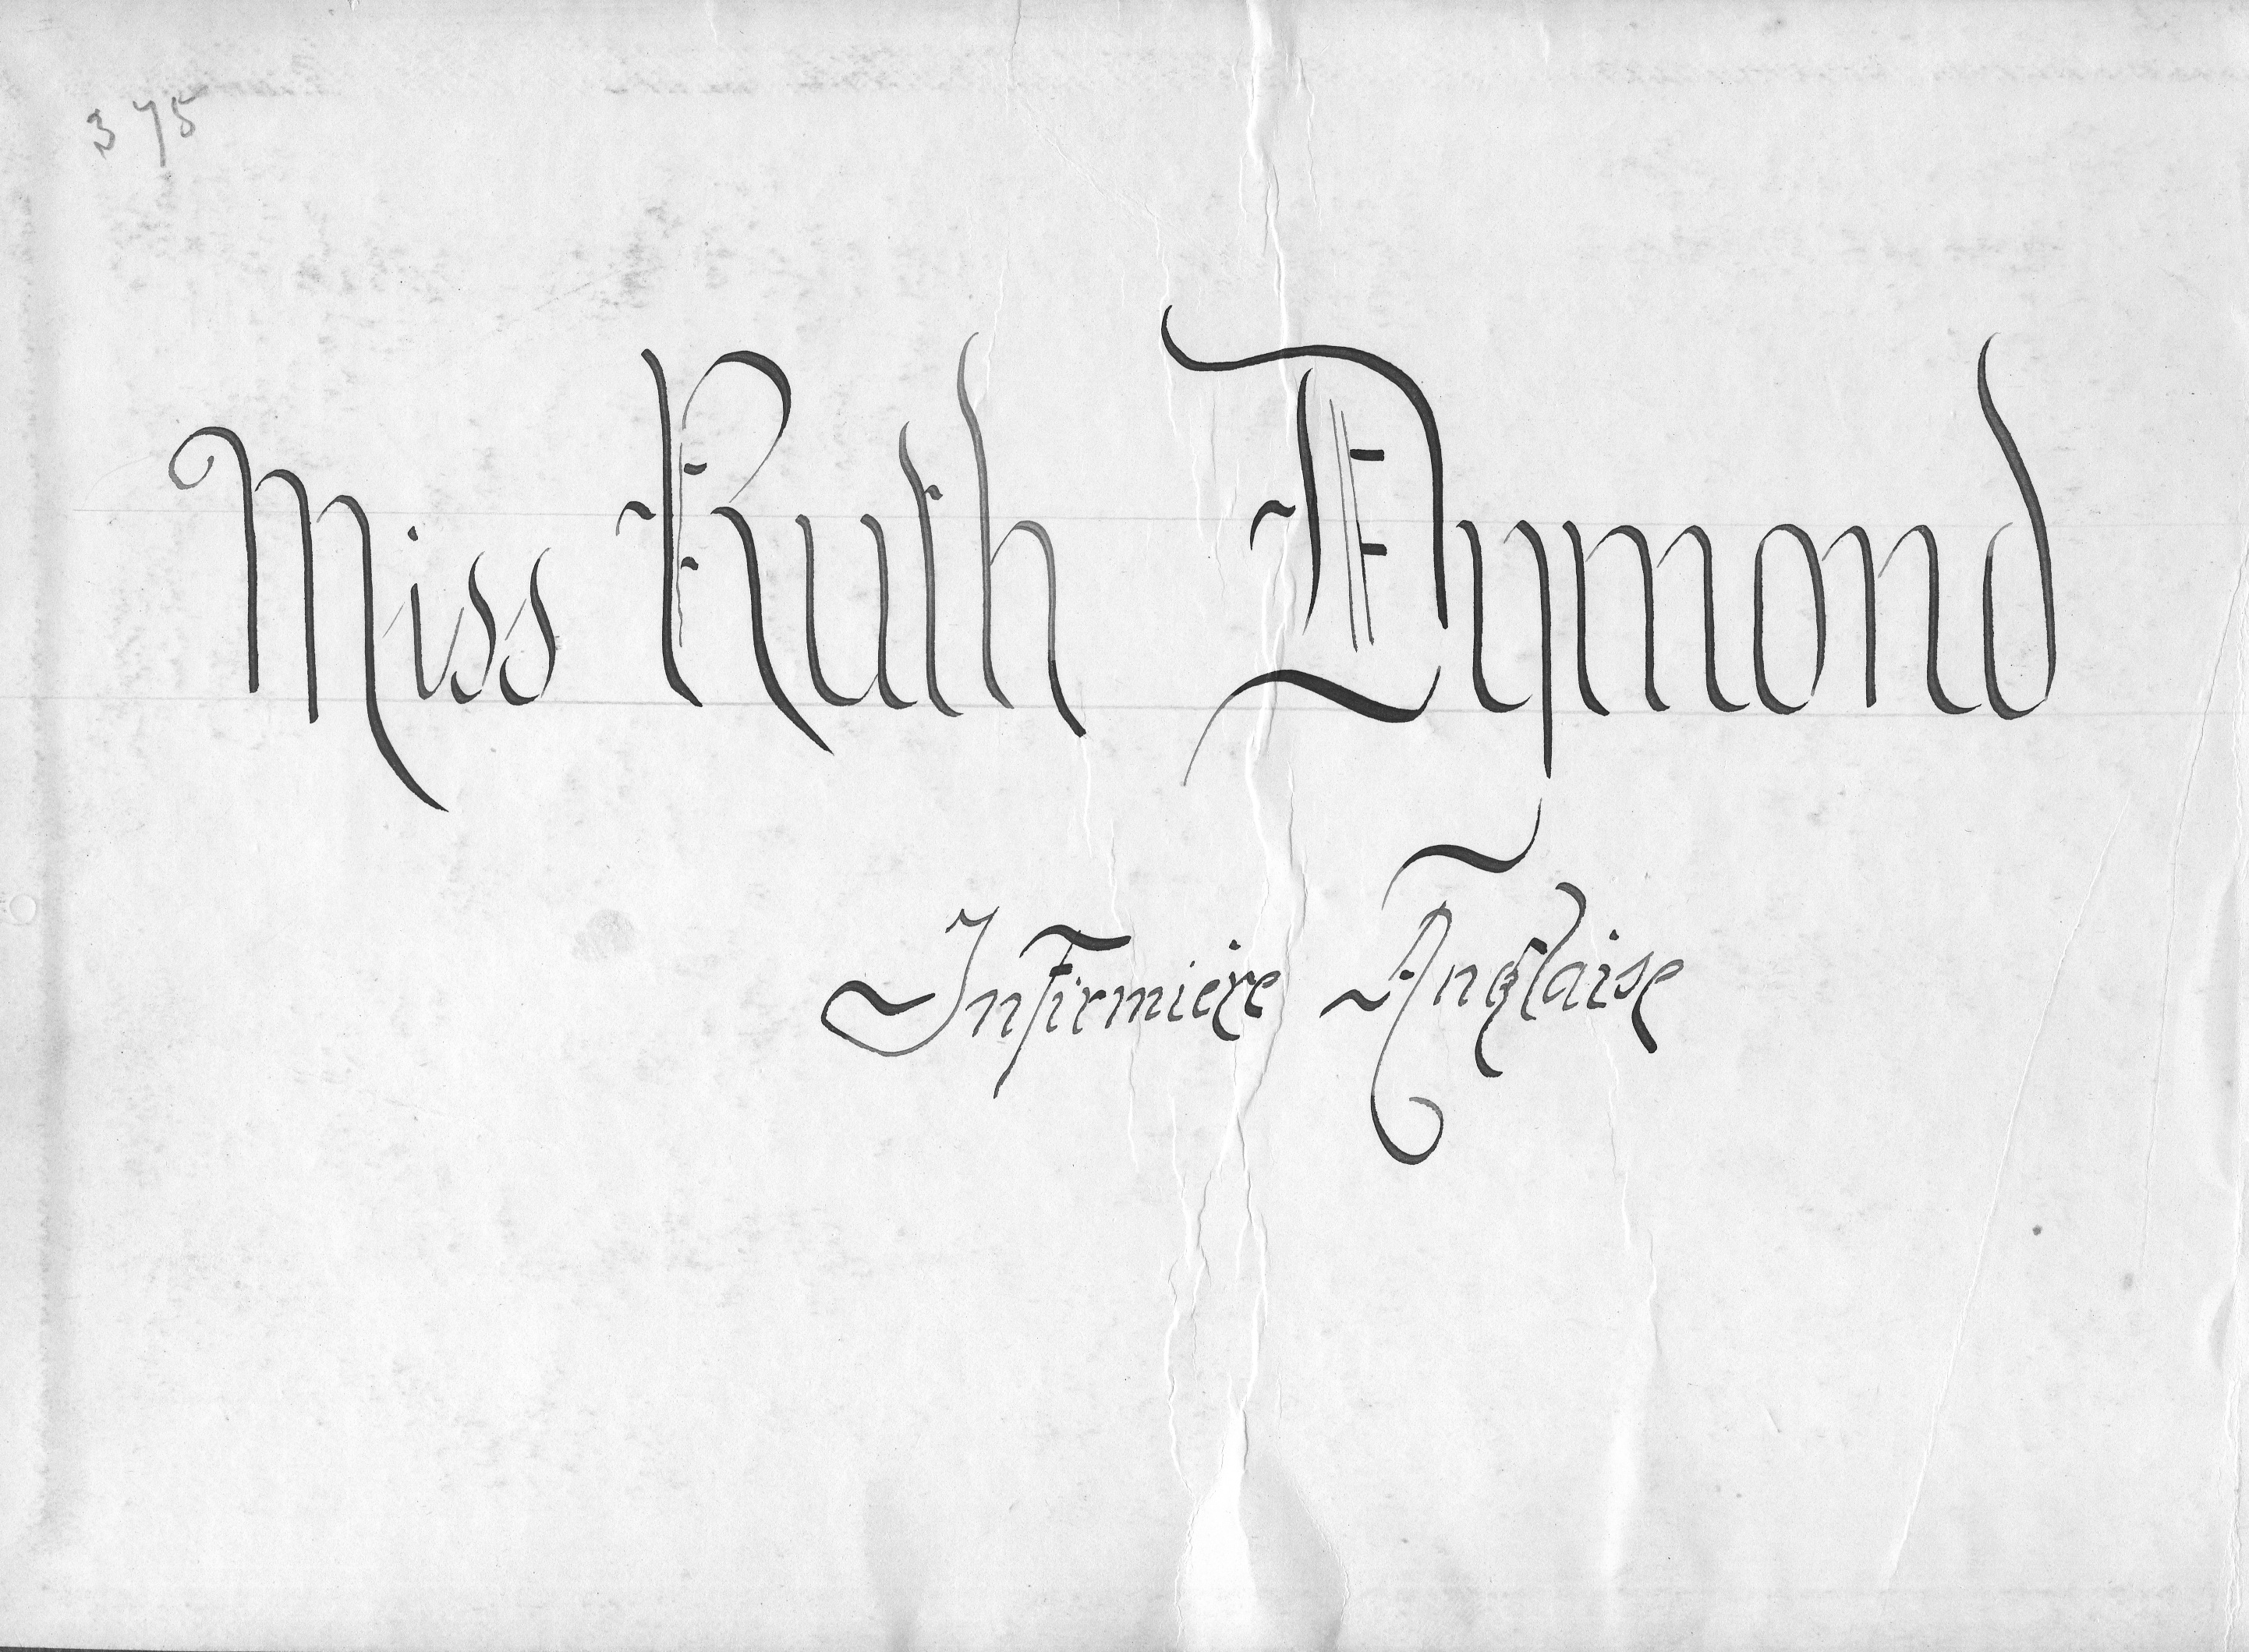 375
Miss Ruth Dymond
Infirmière Anglaise